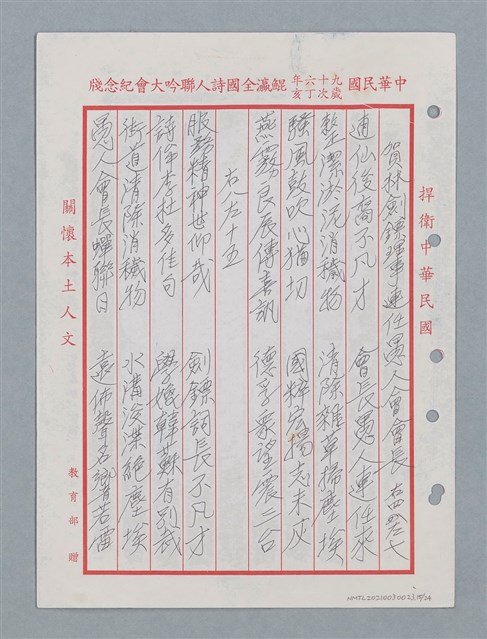 中華民國九十六年歲次丁亥鯤瀛全國詩人聯吟大會紀念牋
捍衛中華民國
賀林劍鏢理事連任愚人會會長
逋仙後裔不凡才 會長愚人連任來
整潔淤流消穢物 清除雜草掃塵埃
騷風鼓吹心猶切 國粹宏揚志未灰
燕霧良辰傳喜訊 德孚眾望震三台
右左十五
服務精神世仰哉 劍鏢詞長不凡才
詩侔李杜多佳句 學媲韓蘇有別裁
街道清除消穢物 水溝浚渫絕塵埃
愚人會長蟬聯日 遠佈聲名響若雷
關懷本土人文
教育部 贈